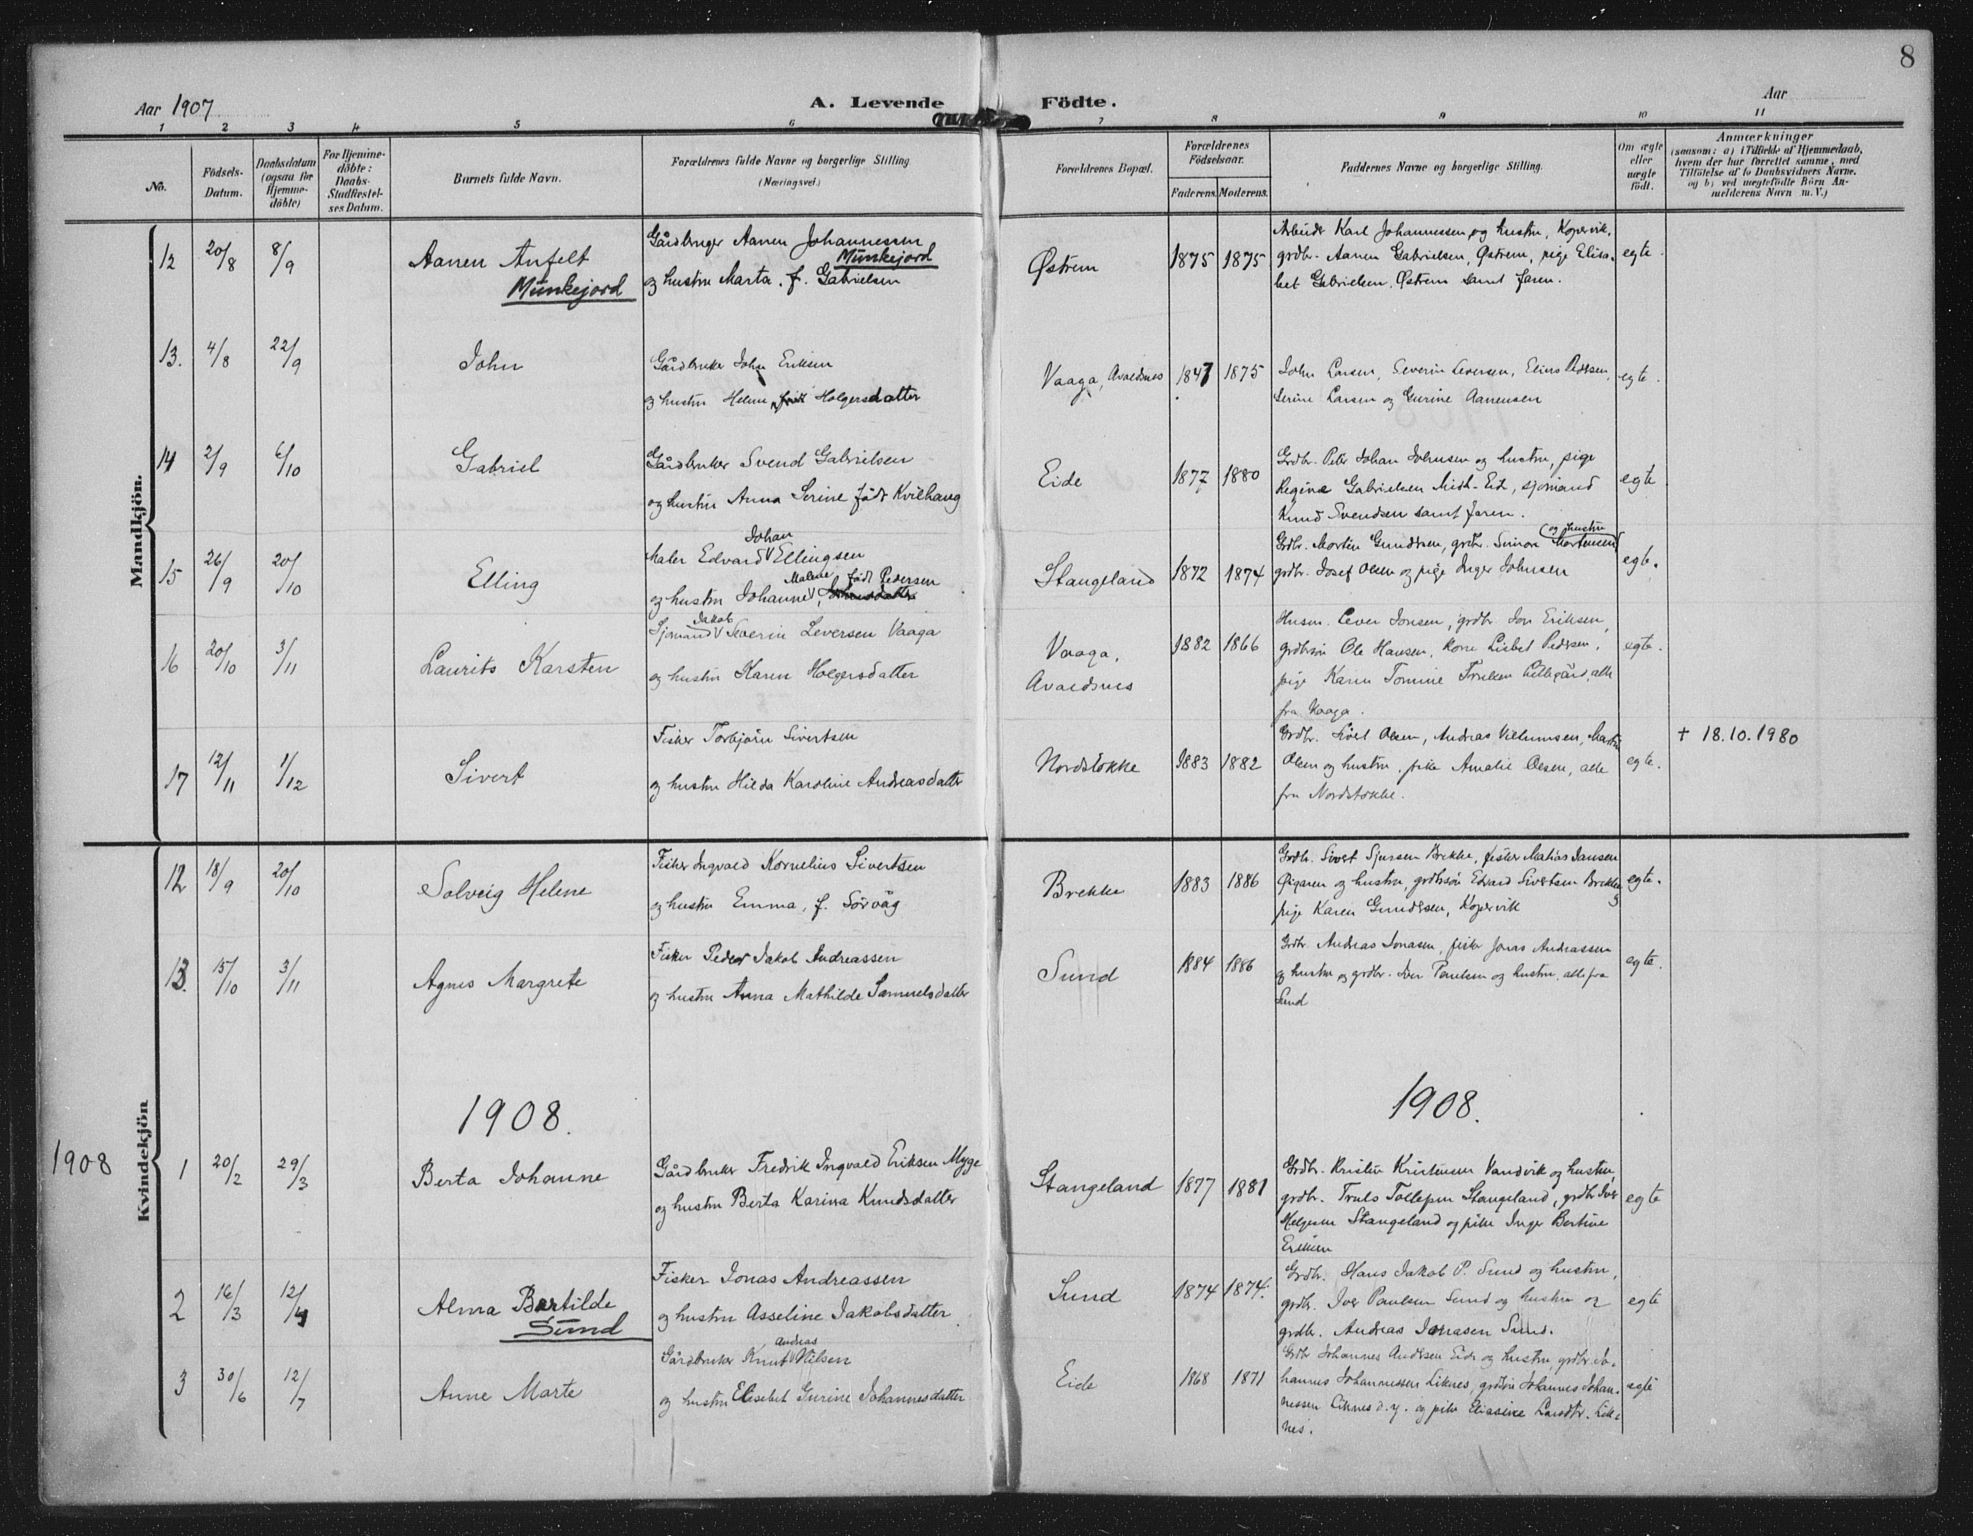 8
Aar 1907
A. Levende Födte.
Aar
1 2 3 4 5 6 7 8 9 10 11
No.
Födsels-
Datum.
Daabsdatum
(ogsaa for
Hjemme-
döbte)
For Hjemme-
döbte:
Daabs-
Stadfæstel-
ses Datum.
Barnets fulde Navn.
Forældrenes fulde Navne og borgerlige Stilling
(Næringsvei.)
Forældrenes Bopæl.
Forældrenes
Födselsaar.
Faderens. Moderens.
Faddernes Navne og borgerlige Stilling.
Om ægte
eller
uægte
födt.
Anmærkninger
(saasom: a) i Tilfælde af Hjemmedaab,
hvem der har forrettet samme, med
Tilföielse af to Daabsvidners Navne.
og b) ved uægtefödte Börn An-
melderens Navn m. V.)
Mandkjön.
12 20/8 8/9
Aanen Anfelt
Munkejord
Gårdbruger Aanen Johannessen
Munkejord
og hustru Marta. f. Gabrielsen
Østrem 1875 1875
Arbeider Karl Johannessen og hustru, Kopervik,
grdbr. Aanen Gabrielsen, Østrem, pige Elisa-
bet Gabrielsen, Østrem samt faren.
egte
13. 4/8 22/9
John
Gårdbruker John Eriksen
og hustru Helene Holgersdatter
Vaaga, Avaldsnes 1847 1875
John Larsen, Severin Leversen, Elias Pedersen,
Serine Larsen og Gurine Aanensen
egte.
14 2/9 6/10
Gabriel
Gårdbruker Svend Gabrielsen
og hustru Anna Serine født Kvilhaug
Eide 1877 1880
Grdbr. Peter Johan Johnsen og hustru, pige
Regine Gabrielsen Midt-Eide, sjømand
Knud Svendsen samt faren.
egte
15 26/9 20/10
Elling
Johan
Maler Edvard Ellingsen
Malene født Pedersen
og hustru Johanne
Stangeland 1872 1874
og hustru
Grdbr. Morten Gundersen, grdbr. Simon Mortensen
grdbr. Josef Olsen og pige Inger Johnsen
egte.
16 20/10 3/11
Laurits Karsten
Jakob
Sjømand Severin Leversen Vaaga
og hustru Karen Holgersdatter
Vaaga,
Avaldsnes
1882 1866
Husm. Lever Jonsen, grdbr. Jon Eriksen,
grdbrsøn Ole Hansen, kone Lisbet Pedersen,
pige Karen Tomine Lillegård, alle
fra Vaaga.
egte.
17 12/11 1/12
Sivert
Fisker Torbjørn Sivertsen
og hustru Hilda Karoline Andreasdatter
Nordstokke 1883 1882
Olsen, Andreas Villumsen, Martin
Olsen og hustru, pike Amalie Olsen, alle
fra Nordstokke.
egte.
† 18.10.1980
Kvindekjön
12 18/9 20/10
Solveig Helene
Fisker Ingvald Kornelius Sivertsen
og hustru Emma, f. Sörvåg
Brekke 1883 1886
Grdbr. Sivert Sjursen Brekke, fisker Matias Jansen
Øigaren og hustru, grdbrsøn Edvard Sivertsen Brekke,
pige Karen Gundersen, Kopervik
egte.
13. 15/10 3/11
Agnes Margrete
Fisker Peder Jakob Andreassen
og hustru Anna Mathilde Samuelsdatter
Sund 1884 1886
Grdbr. Andreas Jonasen, fisker Jonas Andreassen
og hustru og grdbr. Iver Paulsen og hustru, alle fra
Sund
egte.
1908.
1908.
1908
1 20/2 29/3
Berta Johanne
Gårdbruker Fredrik Ingvald Eriksen Myge
og hustru Berta Karina Knudsdatter
Stangeland 1877 1881
Grdbr. Kristen Kristensen Vandvik og hustru,
grdbr. Truls Tollefsen Stangeland, grdbr Iver
Helgesen Stangeland og pike Inger Bertine
Eriksen
egte
2 16/3 12/4
Alma Bertilde
Sund
Fisker Jonas Andreassen
og hustru Asseline Jakobsdatter.
Sund 1874 1874.
Grdbr. Hans Jakob P. Sund og hustru,
grdbr. Iver Paulsen Sund og hustru og
grdbr. Andreas Jonasen Sund.
egte
3 30/6 12/7
Anne Marte
Andreas
Gårdbruker Knut Nilsen
og hustru Elisebet Gurine Johannesdatter
Eide 1868 1871
Grdbr Johannes Andersen Eide og hustru, grdbr. Jo-
hannes Johannessen Liknes, grdbrsøn Johannes Johan-
nessen Liknes d.y. og pike Eliasine Larsdtr. Lik-
nes.
egte